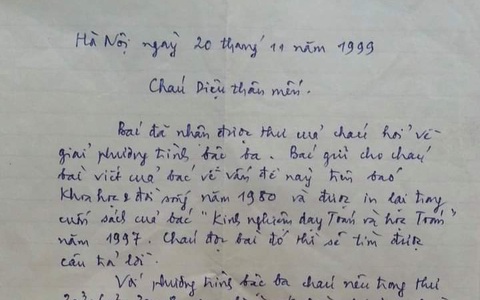 Hà Nội ngày 20 tháng 11 năm 1999
Cháu Diệu thân mến.
Bác đã nhận được thư của cháu hỏi về
giải phương trình bậc ba. Bác gửi cho cháu
bài viết của bác về vấn đề này trên báo
Khoa học & đời sống năm 1980 và được in lại trong
cuốn sách của bác "Kinh nghiệm dạy Toán và học Toán"
năm 1997. Cháu đọc bài đó thì sẽ tìm được
câu trả lời.
Với phương trình bậc ba cháu nêu trong thư